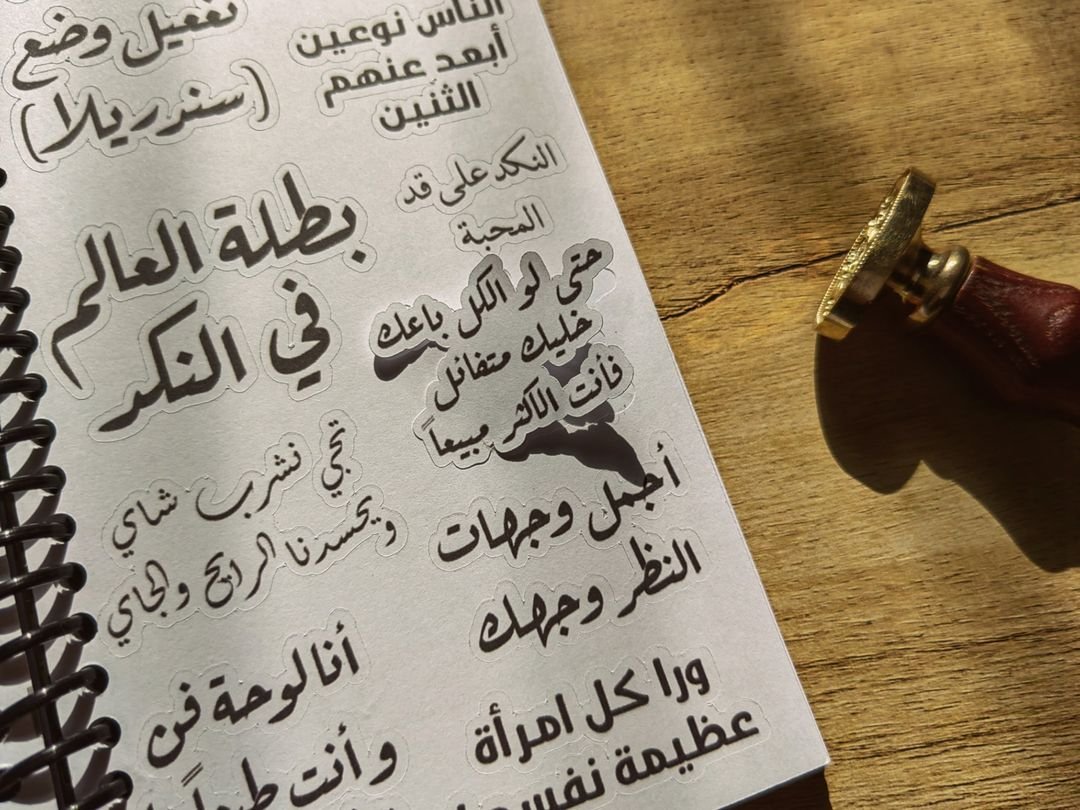 الناس نوعين
أبعد عنهم
الثنين
تفعيل وضع
(سندريلا)
النكد على قد
المحبة
بطلة العالم
في النكد
حتى لو الكل باعك
خليك متفائل
فأنت الأكثر مبيعاً
تجي نشرب شاي
ويحسدنا الرايح والجاي
أجمل وجهات
النظر وجهك
أنا لوحة فن
وأنت
ورا كل امرأة
عظيمة